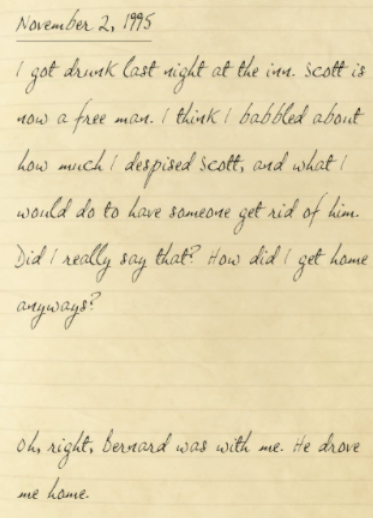 November 2, 1995
I got drunk last night at the inn. Scott is
now a free man. I think I babbled about
how much I despised Scott, and what I
would do to have someone get rid of him.
Did I really say that? How did I get home
anyways?
Oh, right, Bernard was with me. He drove
me home.